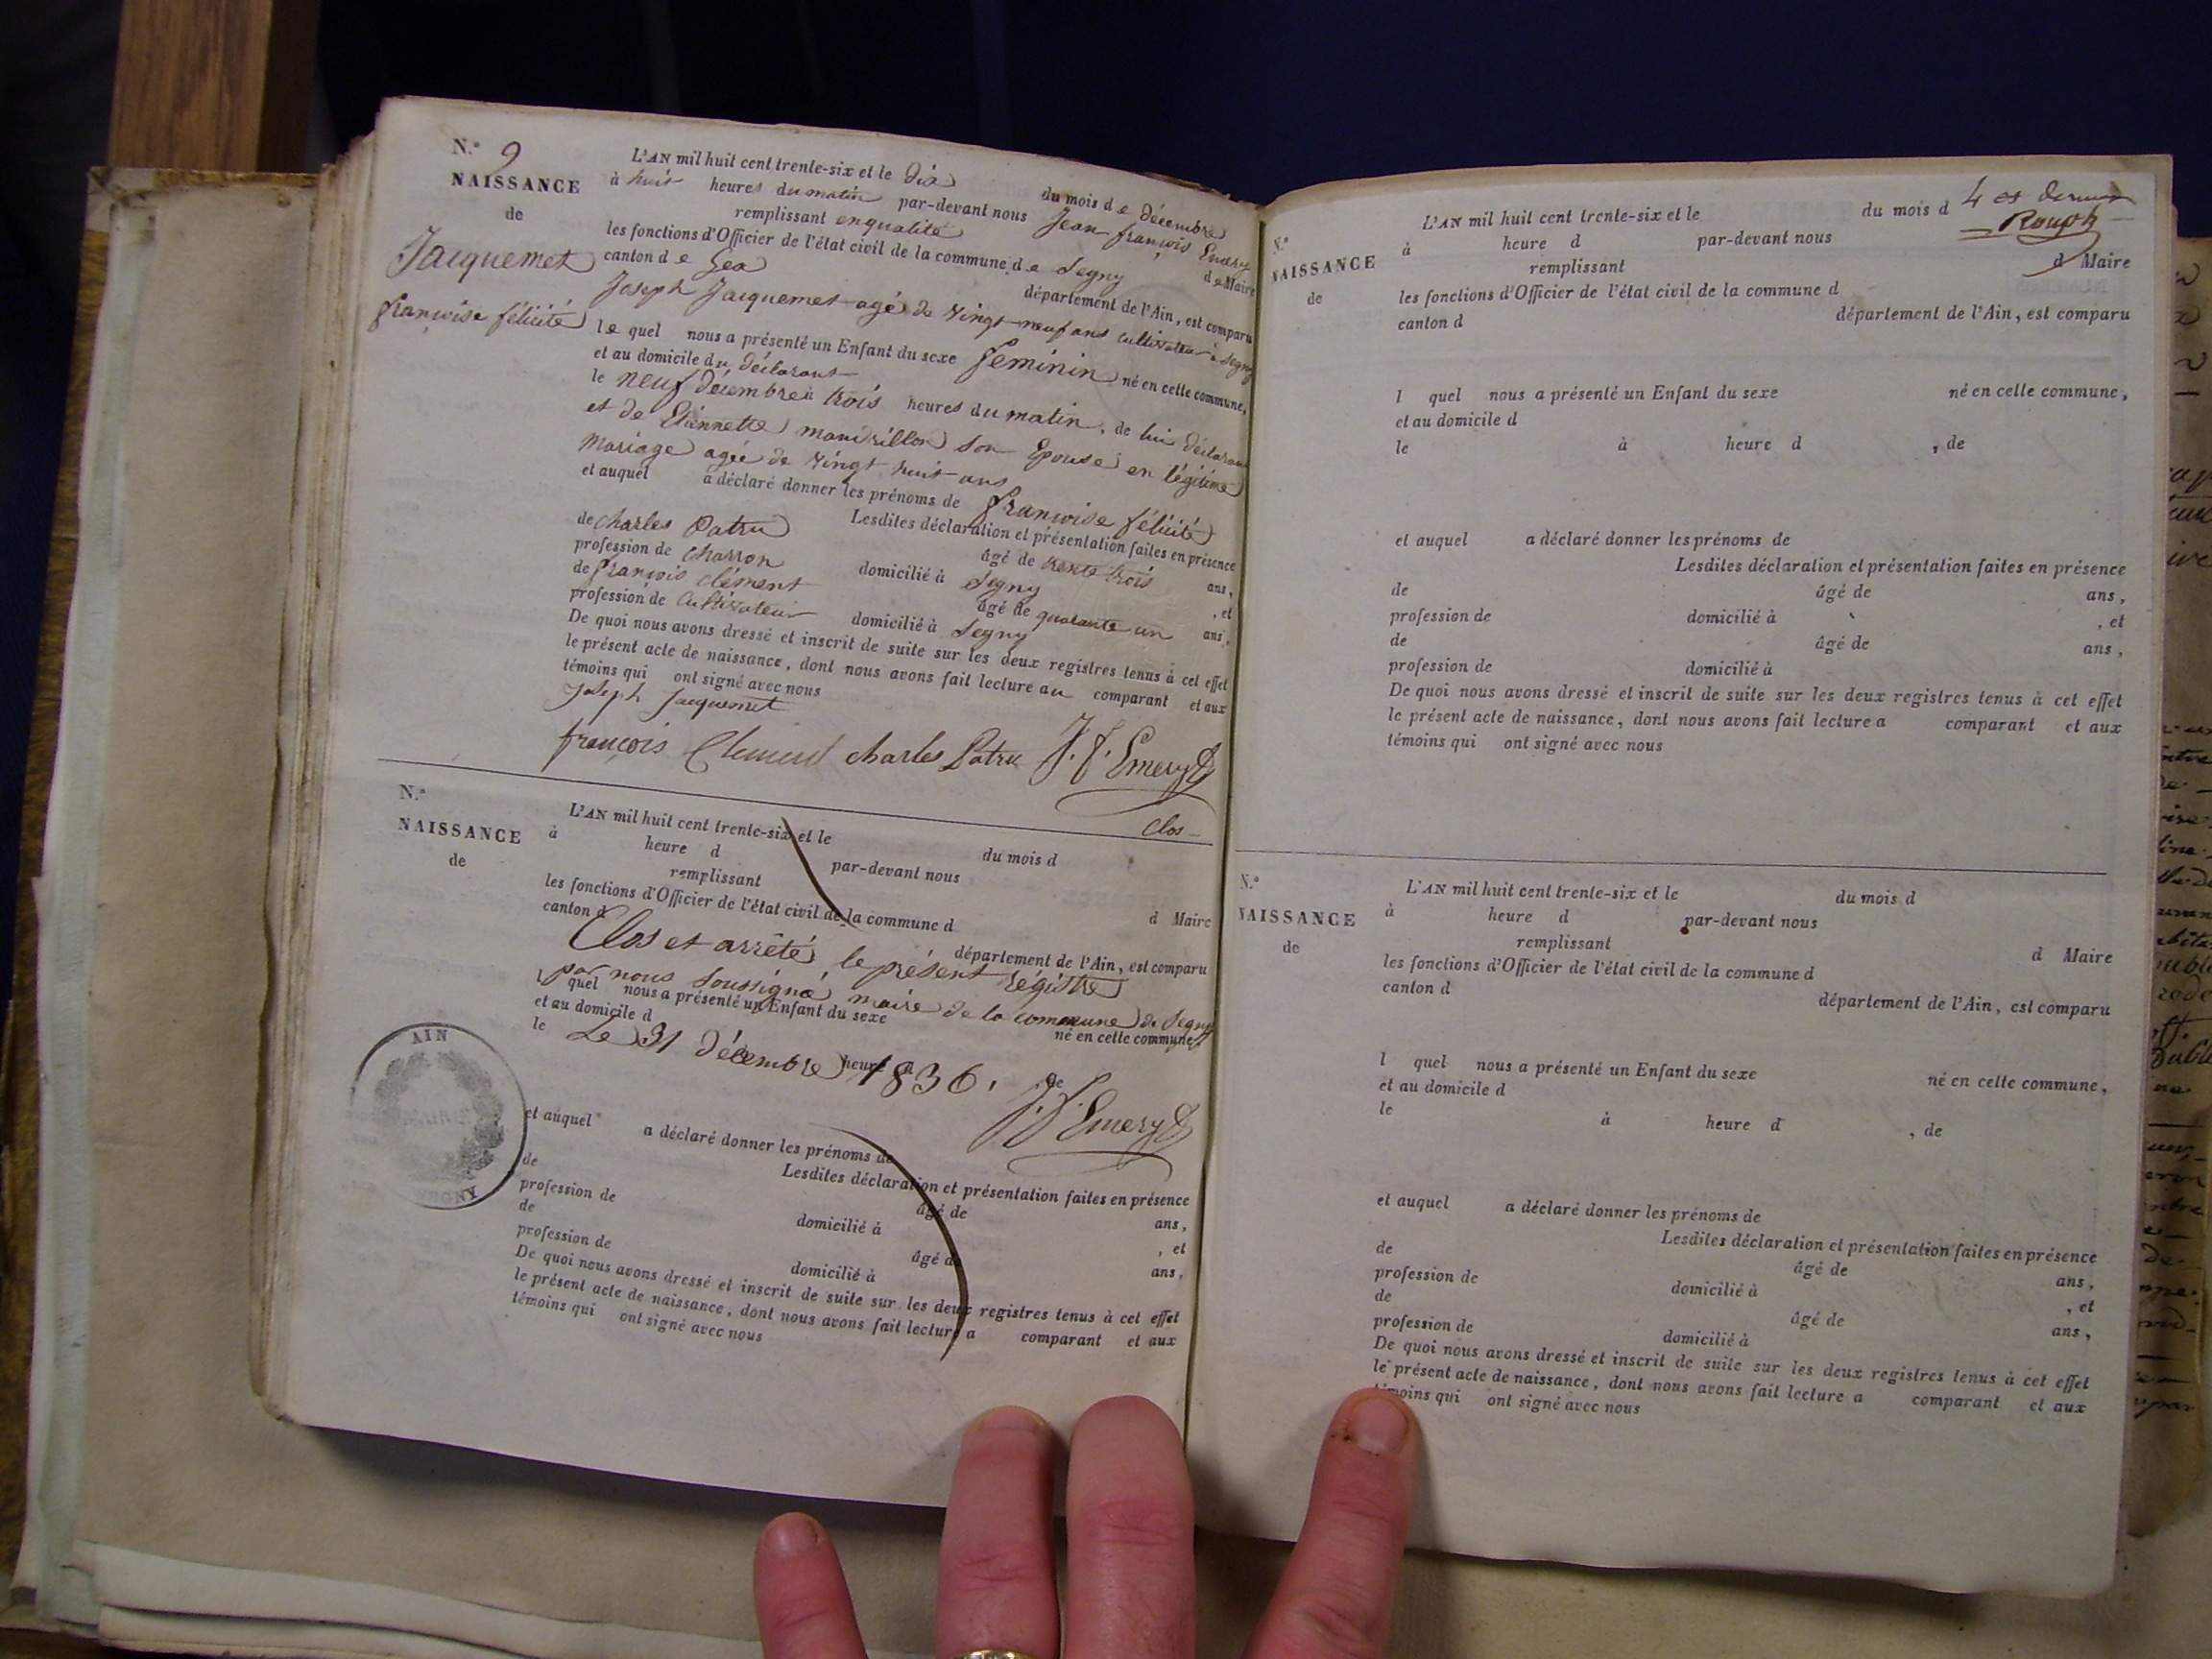 N.º 9
NAISSANCE
de
Jacquemet
françoise félicité
L'AN mil huit cent trente-six et le dix du mois de décembre
à huit heures du matin par-devant nous Jean françois Emery
remplissant en qualité de Maire
les fonctions d'Officier de l'état civil de la commune de Segny
canton de Gex département de l'Ain, est comparu
Joseph Jacquemet agé de vingt neuf ans cultivateur à Segny
le quel nous a présenté un Enfant du sexe feminin né en cette commune,
et au domicile du déclarant
le neuf décembre à trois heures du matin, de lui déclarant
et de Etiennette mandrillon son Epouse en légitime
mariage agée de vingt huit ans
et auquel a déclaré donner les prénoms de françoise félicité
Lesdites déclaration et présentation faites en présence
de charles Patru âgé de trente trois ans,
profession de charron domicilié à Segny , et
de françois clément âgé de quarante un ans,
profession de Cultivateur domicilié à Segny
De quoi nous avons dressé et inscrit de suite sur les deux registres tenus à cet effet
le présent acte de naissance, dont nous avons fait lecture au comparant et aux
témoins qui ont signé avec nous
Joseph Jacquemet
françois Clement charles Patru J. f. Emery
Clos
N.º
NAISSANCE
de
L'AN mil huit cent trente-six et le du mois d
à heure d par-devant nous
remplissant d Maire
les fonctions d'Officier de l'état civil de la commune d
canton d département de l'Ain, est comparu
Clos et arrêté le présent régistre
par nous soussigné maire de la commune de Segny
l quel nous a présenté un Enfant du sexe né en cette commune,
et au domicile d
le à heure d , de
Le 31 décembre 1836.
J. f. Emery
et auquel a déclaré donner les prénoms de
Lesdites déclaration et présentation faites en présence
de âgé de ans,
profession de domicilié à , et
de âgé de ans,
profession de domicilié à
De quoi nous avons dressé et inscrit de suite sur les deux registres tenus à cet effet
le présent acte de naissance, dont nous avons fait lecture a comparant et aux
témoins qui ont signé avec nous
AIN
4 et dernier
Rouph
N.º
NAISSANCE
de
L'AN mil huit cent trente-six et le du mois d
à heure d par-devant nous
remplissant d Maire
les fonctions d'Officier de l'état civil de la commune d
canton d département de l'Ain, est comparu
l quel nous a présenté un Enfant du sexe né en cette commune,
et au domicile d
le à heure d , de
et auquel a déclaré donner les prénoms de
Lesdites déclaration et présentation faites en présence
de âgé de ans,
profession de domicilié à , et
de âgé de ans,
profession de domicilié à
De quoi nous avons dressé et inscrit de suite sur les deux registres tenus à cet effet
le présent acte de naissance, dont nous avons fait lecture a comparant et aux
témoins qui ont signé avec nous
N.º
NAISSANCE
de
L'AN mil huit cent trente-six et le du mois d
à heure d par-devant nous
remplissant d Maire
les fonctions d'Officier de l'état civil de la commune d
canton d département de l'Ain, est comparu
l quel nous a présenté un Enfant du sexe né en cette commune,
et au domicile d
le à heure d , de
et auquel a déclaré donner les prénoms de
Lesdites déclaration et présentation faites en présence
de âgé de ans,
profession de domicilié à , et
de âgé de ans,
profession de domicilié à
De quoi nous avons dressé et inscrit de suite sur les deux registres tenus à cet effet
le présent acte de naissance, dont nous avons fait lecture a comparant et aux
témoins qui ont signé avec nous